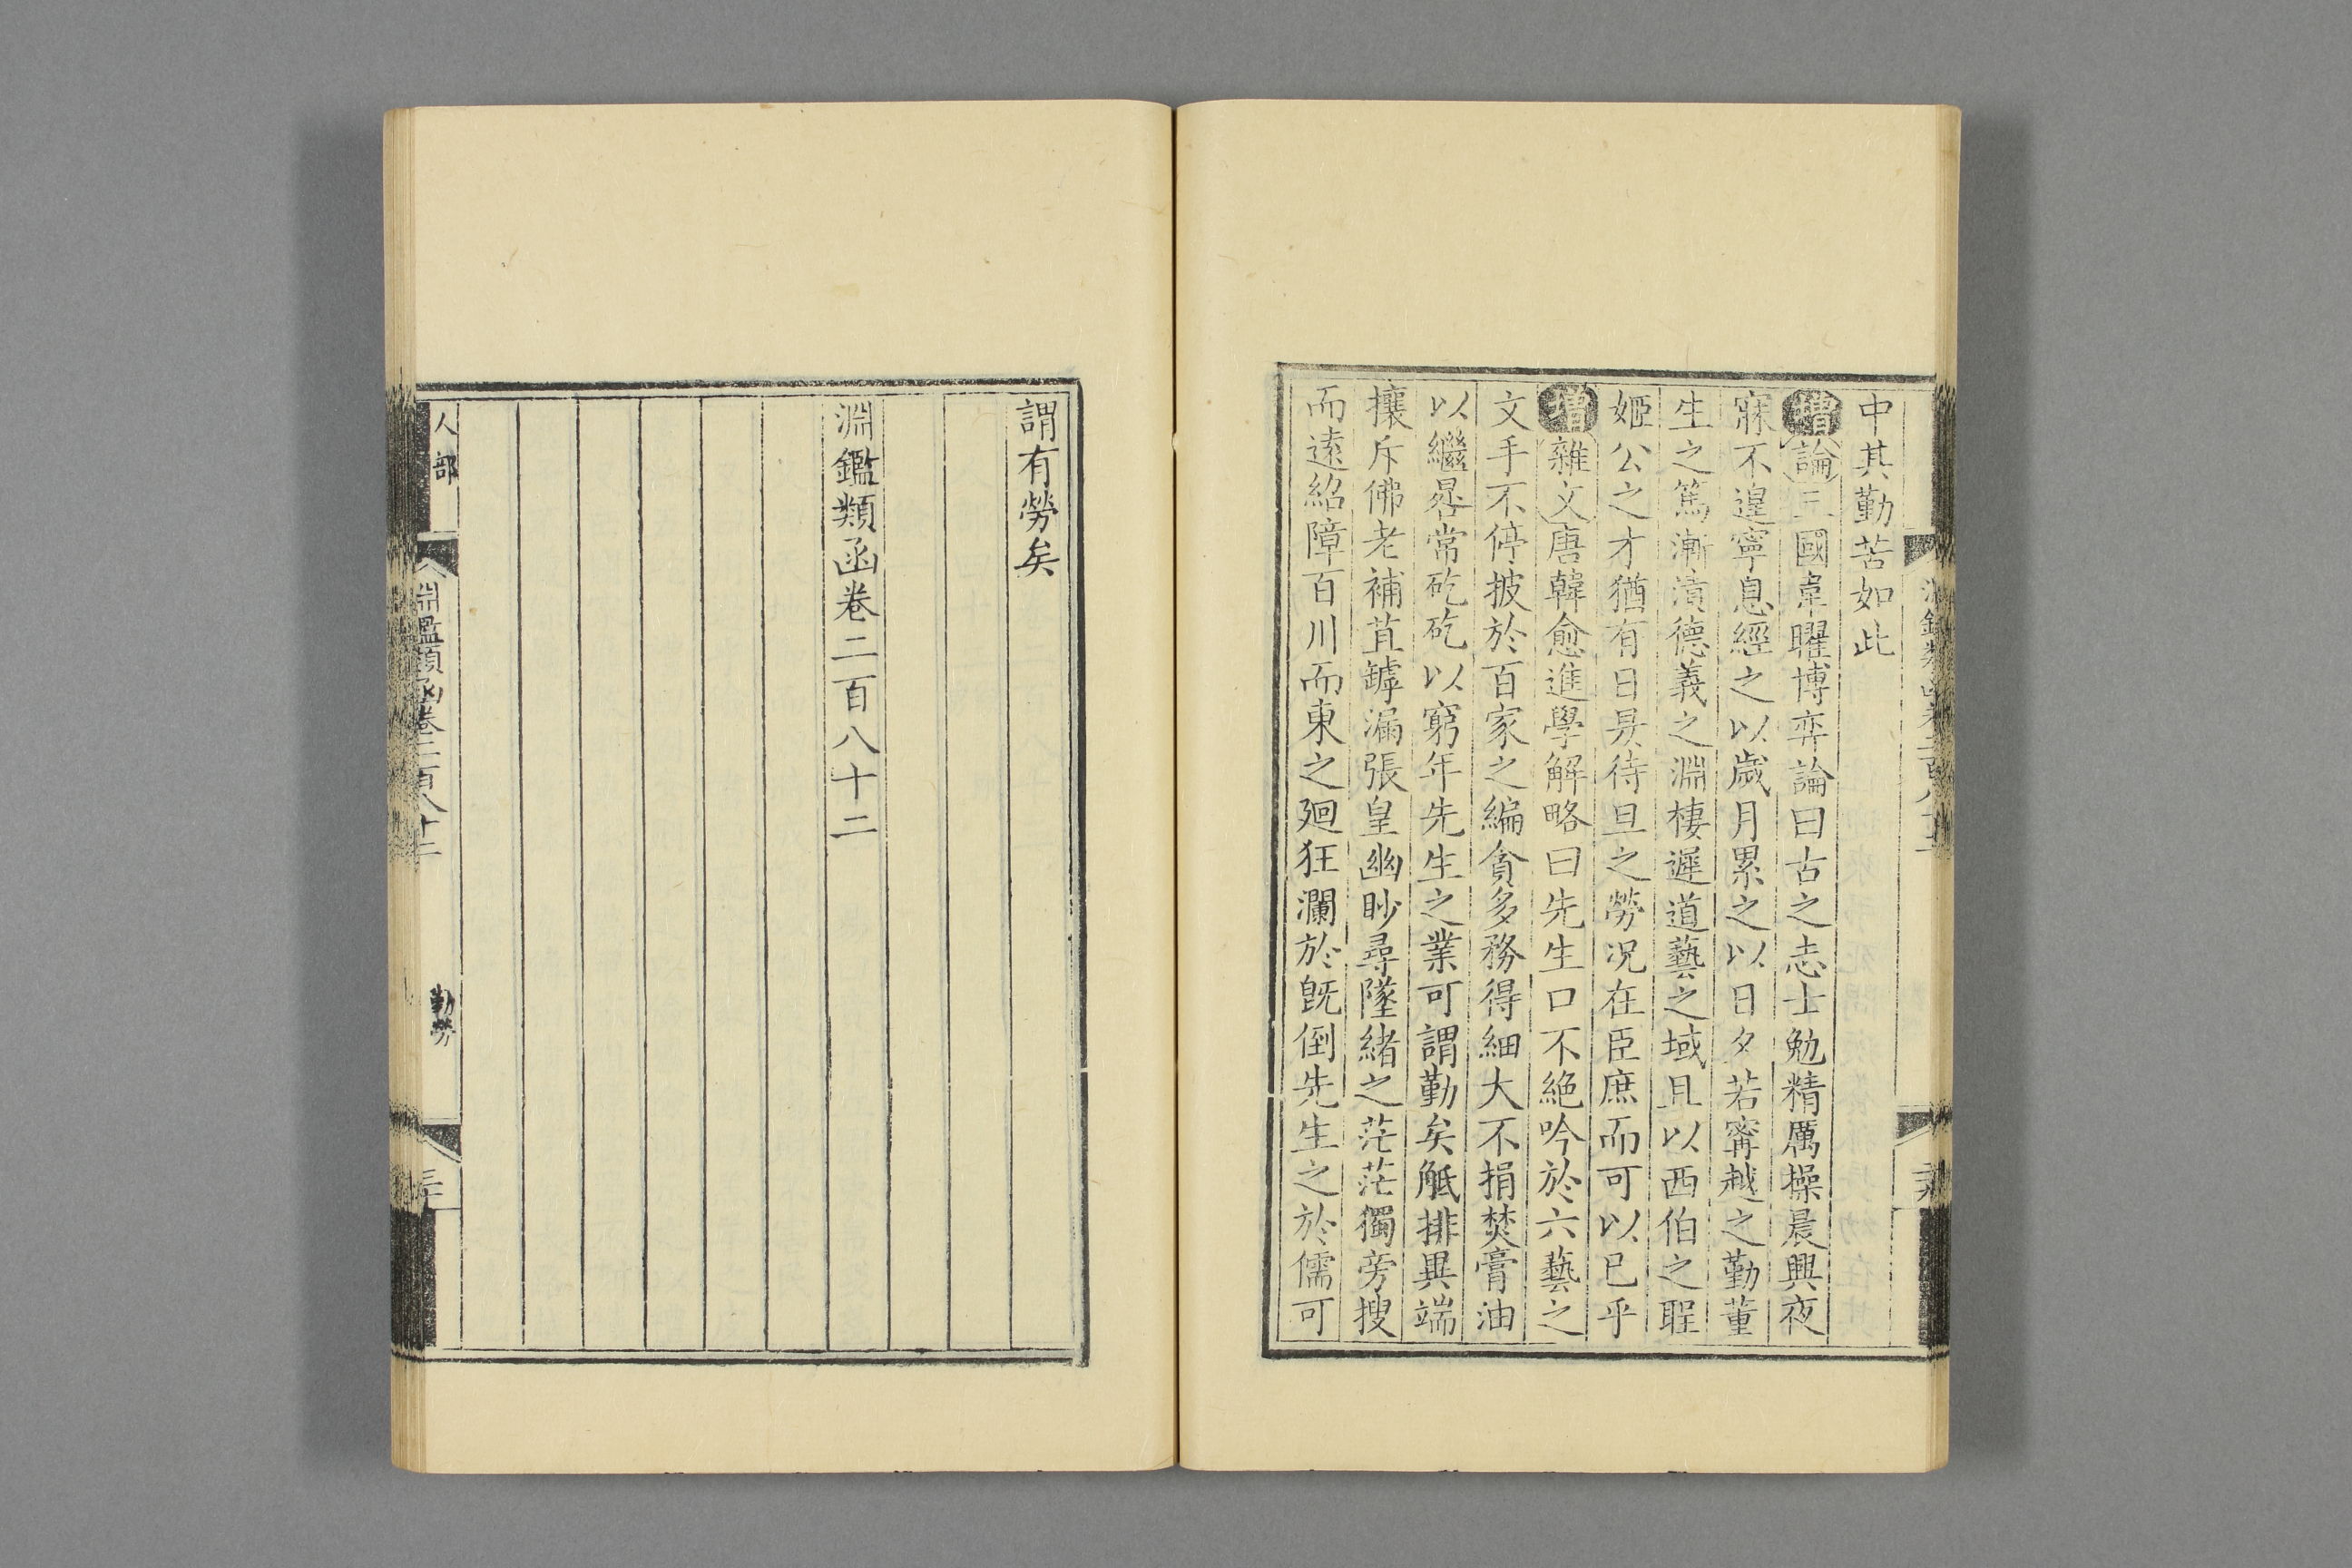 中其勤苦如此
增論三國韋曜博弈論曰古之志士勉精厲操晨興夜
寐不遑寧息經之以歲月累之以日夕若甯越之勤董
生之篤漸漬德義之淵棲遲道藝之域且以西伯之聖
姬公之才猶有日昃待旦之勞况在臣庶而可以已乎
增雜文唐韓愈進學解略曰先生口不絶吟於六藝之
文手不停披於百家之編貪多務得細大不捐焚膏油
以繼晷常矻矻以窮年先生之業可謂勤矣觝排異端
攘斥佛老補苴罅漏張皇幽眇尋墜緒之茫茫獨旁搜
而遠紹障百川而東之廻狂瀾於旣倒先生之於儒可
謂有勞矣
淵鑑類函卷二百八十二
人部
淵鑑類函卷二百八十二
勤勞